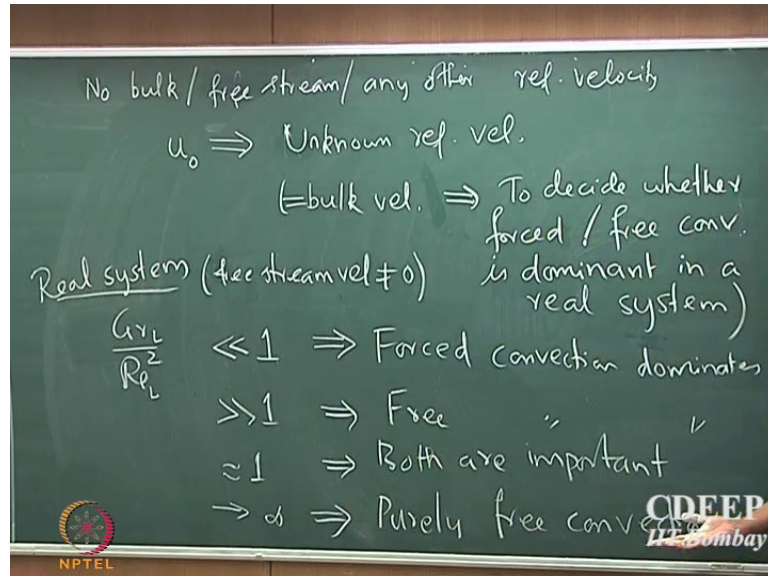 No bulk / free stream / any other ref. velocity
u₀ ⇒ Unknown ref. vel.
(=bulk vel. ⇒ To decide whether
forced / free conv.
is dominant in a
real system)
Real system (free stream vel ≠ 0)
Gr_L / Re_L² << 1 ⇒ Forced convection dominates
>> 1 ⇒ Free " "
≈ 1 ⇒ Both are important
→ ∞ ⇒ Purely free convec
NPTEL
CDEEP
IIT Bombay